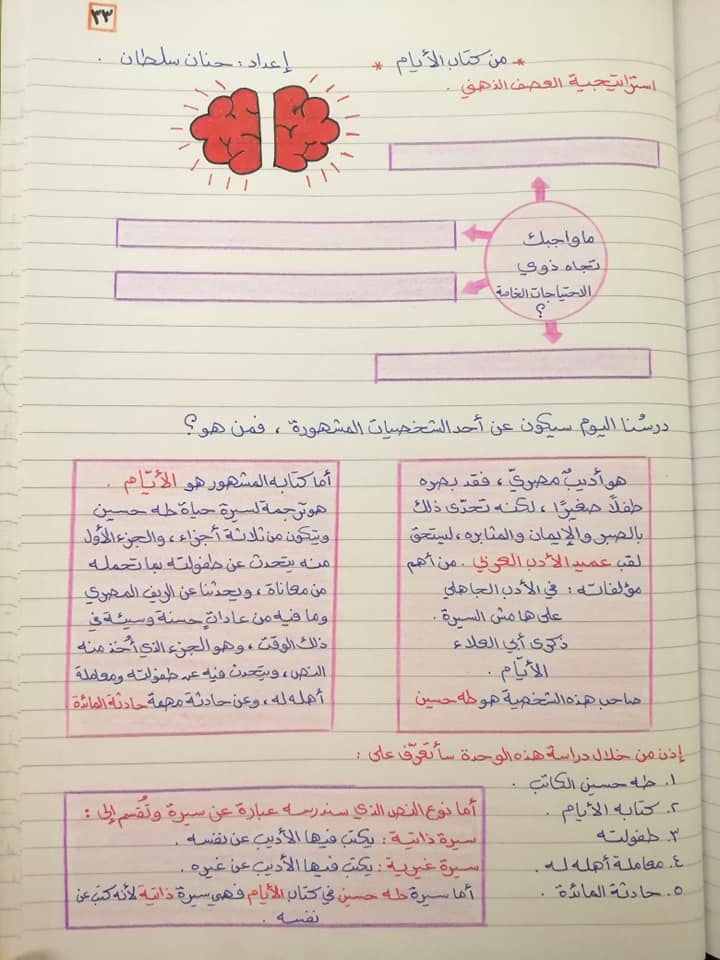 ٣٣
* من كتاب الأيام *
إعداد: حنان سلطان .
استراتيجية العصف الذهني .
ما واجبك
تجاه ذوي
الاحتياجات الخاصة
؟
درسُنا اليوم سيكون عن أحد الشخصيات المشهورة ، فمن هو؟
هو أديبٌ مصريّ ، فقد بصره
طفلًا صغيرًا ، لكنه تحدّى ذلك
بالصبر والإيمان والمثابره ، ليستحق
لقب عميد الأدب العربي . من أهم
مؤلفاته : في الأدب الجاهلي
على هامش السيرة .
ذكرى أبي العلاء
الأيّام .
صاحب هذه الشخصية هو طه حسين
أما كتابه المشهور هو الأيّام .
هو ترجمة لسيرة حياة طه حسين
ويتكون من ثلاثة أجزاء ، والجزء الأول
منه يتحدث عن طفولته بما تحمله
من معاناة ، ويحدثنا عن الريف المصري
وما فيه من عاداتٍ حسنة وسيئة في
ذلك الوقت ، وهو الجزء الذي أُخذ منه
النص ، ويتحدث فيه عن طفولته ومعاملة
أهله له ، وعن حادثة مهمة حادثة المائدة
إذن من خلال دراسة هذه الوحدة سأتعرّف على :
١. طه حسين الكاتب .
٢. كتابه الأيام .
٣. طفولته
٤. معاملة أهله له .
٥. حادثة المائدة .
أما نوع النص الذي سندرسه عبارة عن سيرة وتُقسم إلى :
سيرة ذاتية : يكتب فيها الأديب عن نفسه .
سيرة غيرية : يكتب فيها الأديب عن غيره .
أما سيرة طه حسين في كتاب الأيام فهي سيرة ذاتية لأنه كتب عن
نفسه .